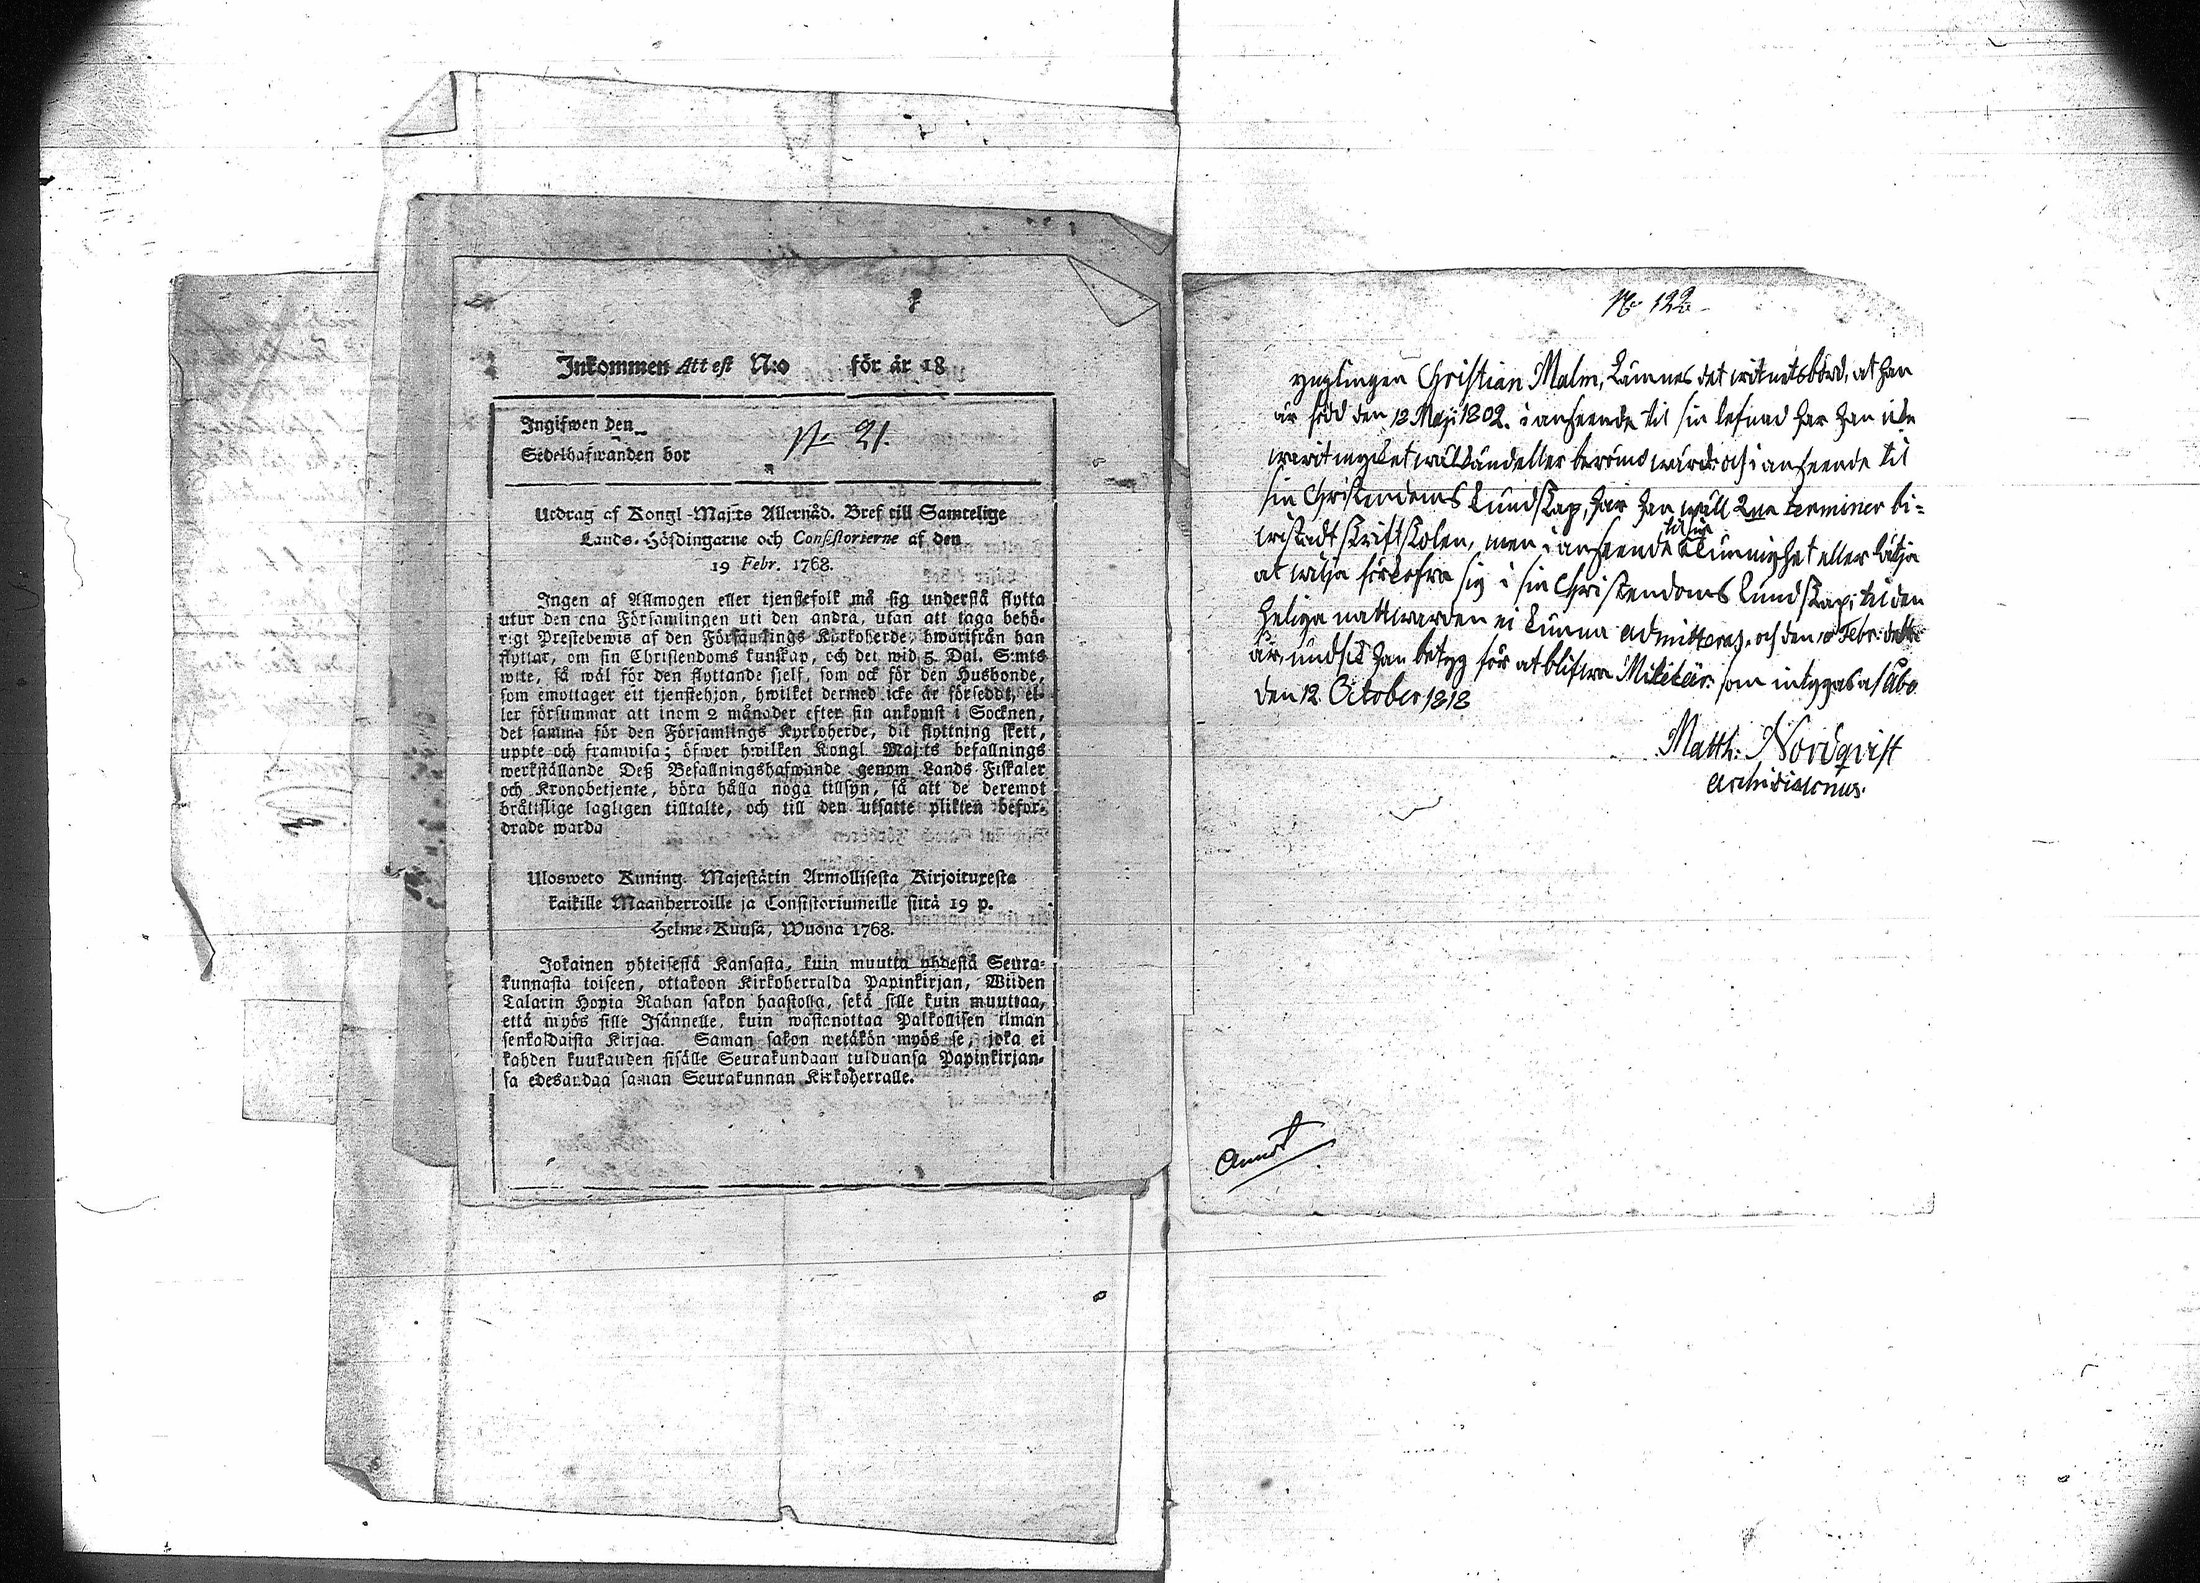 Inkommen Attest N:o för år 18
Ingifwen den
Sedelhafwanden bor
N:o 21.
Utdrag af Kongl. Maj:ts Allernåd. Bref till Samtelige
Lands-Höfdingarne och Consistorierne af den
19 Febr. 1768.
Ingen af Allmogen eller tjenstefolk må sig understå flytta
utur den ena Församlingen uti den andra, utan att taga behö-
rigt Prestebewis af den Församlings Kyrkoherde, hwarifrån han
flyttar, om sin Christendoms kunskap, och det wid 5 Dal. S:mts
wite, så wäl för den flyttande sjelf, som ock för den Husbonde,
som emottager ett tjenstehjon, hwilket dermed icke är försedt, el-
ler försummar att inom 2 månader efter sin ankomst i Socknen,
det samma för den Församlings Kyrkoherde, dit flyttning skett,
uppte och framwisa; öfwer hwilken Kongl. Maj:ts befallnings
werkställande Deß Befallningshafwande genom Lands-Fiskaler
och Kronobetjente, böra hålla noga tillsyn, så att de deremot
brätslige lagligen tilltalte, och till den utsatte plikten befor-
drade warda
Ulosweto Kuning. Majestätin Armollisesta Kirjoituxesta
kaikille Maanherroille ja Consistoriumeille siitä 19 p.
Helme-Kuusa, Wuona 1768.
Jokainen yhteisestä Kansasta, kuin muutta yhdestä Seura-
kunnasta toiseen, ottakoon Kirkoherralda Papinkirjan, Wiiden
Talarin Hopia Rahan sakon haastolla, sekä sille kuin muuttaa,
että myös sille Isännelle, kuin wastanottaa Palkollisen ilman
senkaldaista Kirjaa. Saman sakon wetäkön myös se, joka ei
kahden kuukauden sisälle Seurakundaan tulduansa Papinkirjan-
sa edesandaa saman Seurakunnan Kirkoherralle.
N:o 122
Ynglingen Christian Malm, Lämnes det witnetsbörd, at han
är född den 12 Maji 1802. i anseende til sin lefnad har han icke
warit mycket wälkänd eller berömswärd: och i anseende til
sin Christendoms Kundskap, har han wäll 2ne terminer bi-
wistadt Skriftskolen, men i anseende til sin
at wilja förkofra sig i sin Christendoms Kundskap; til den
heliga nattwarden ei kunna admitteras, och den Febr: detta
år, undfick han betyg för at blifwa Militär: som intygas af Åbo
den 12 October 1818
Matth: Nordqvist
Archidiaconus.